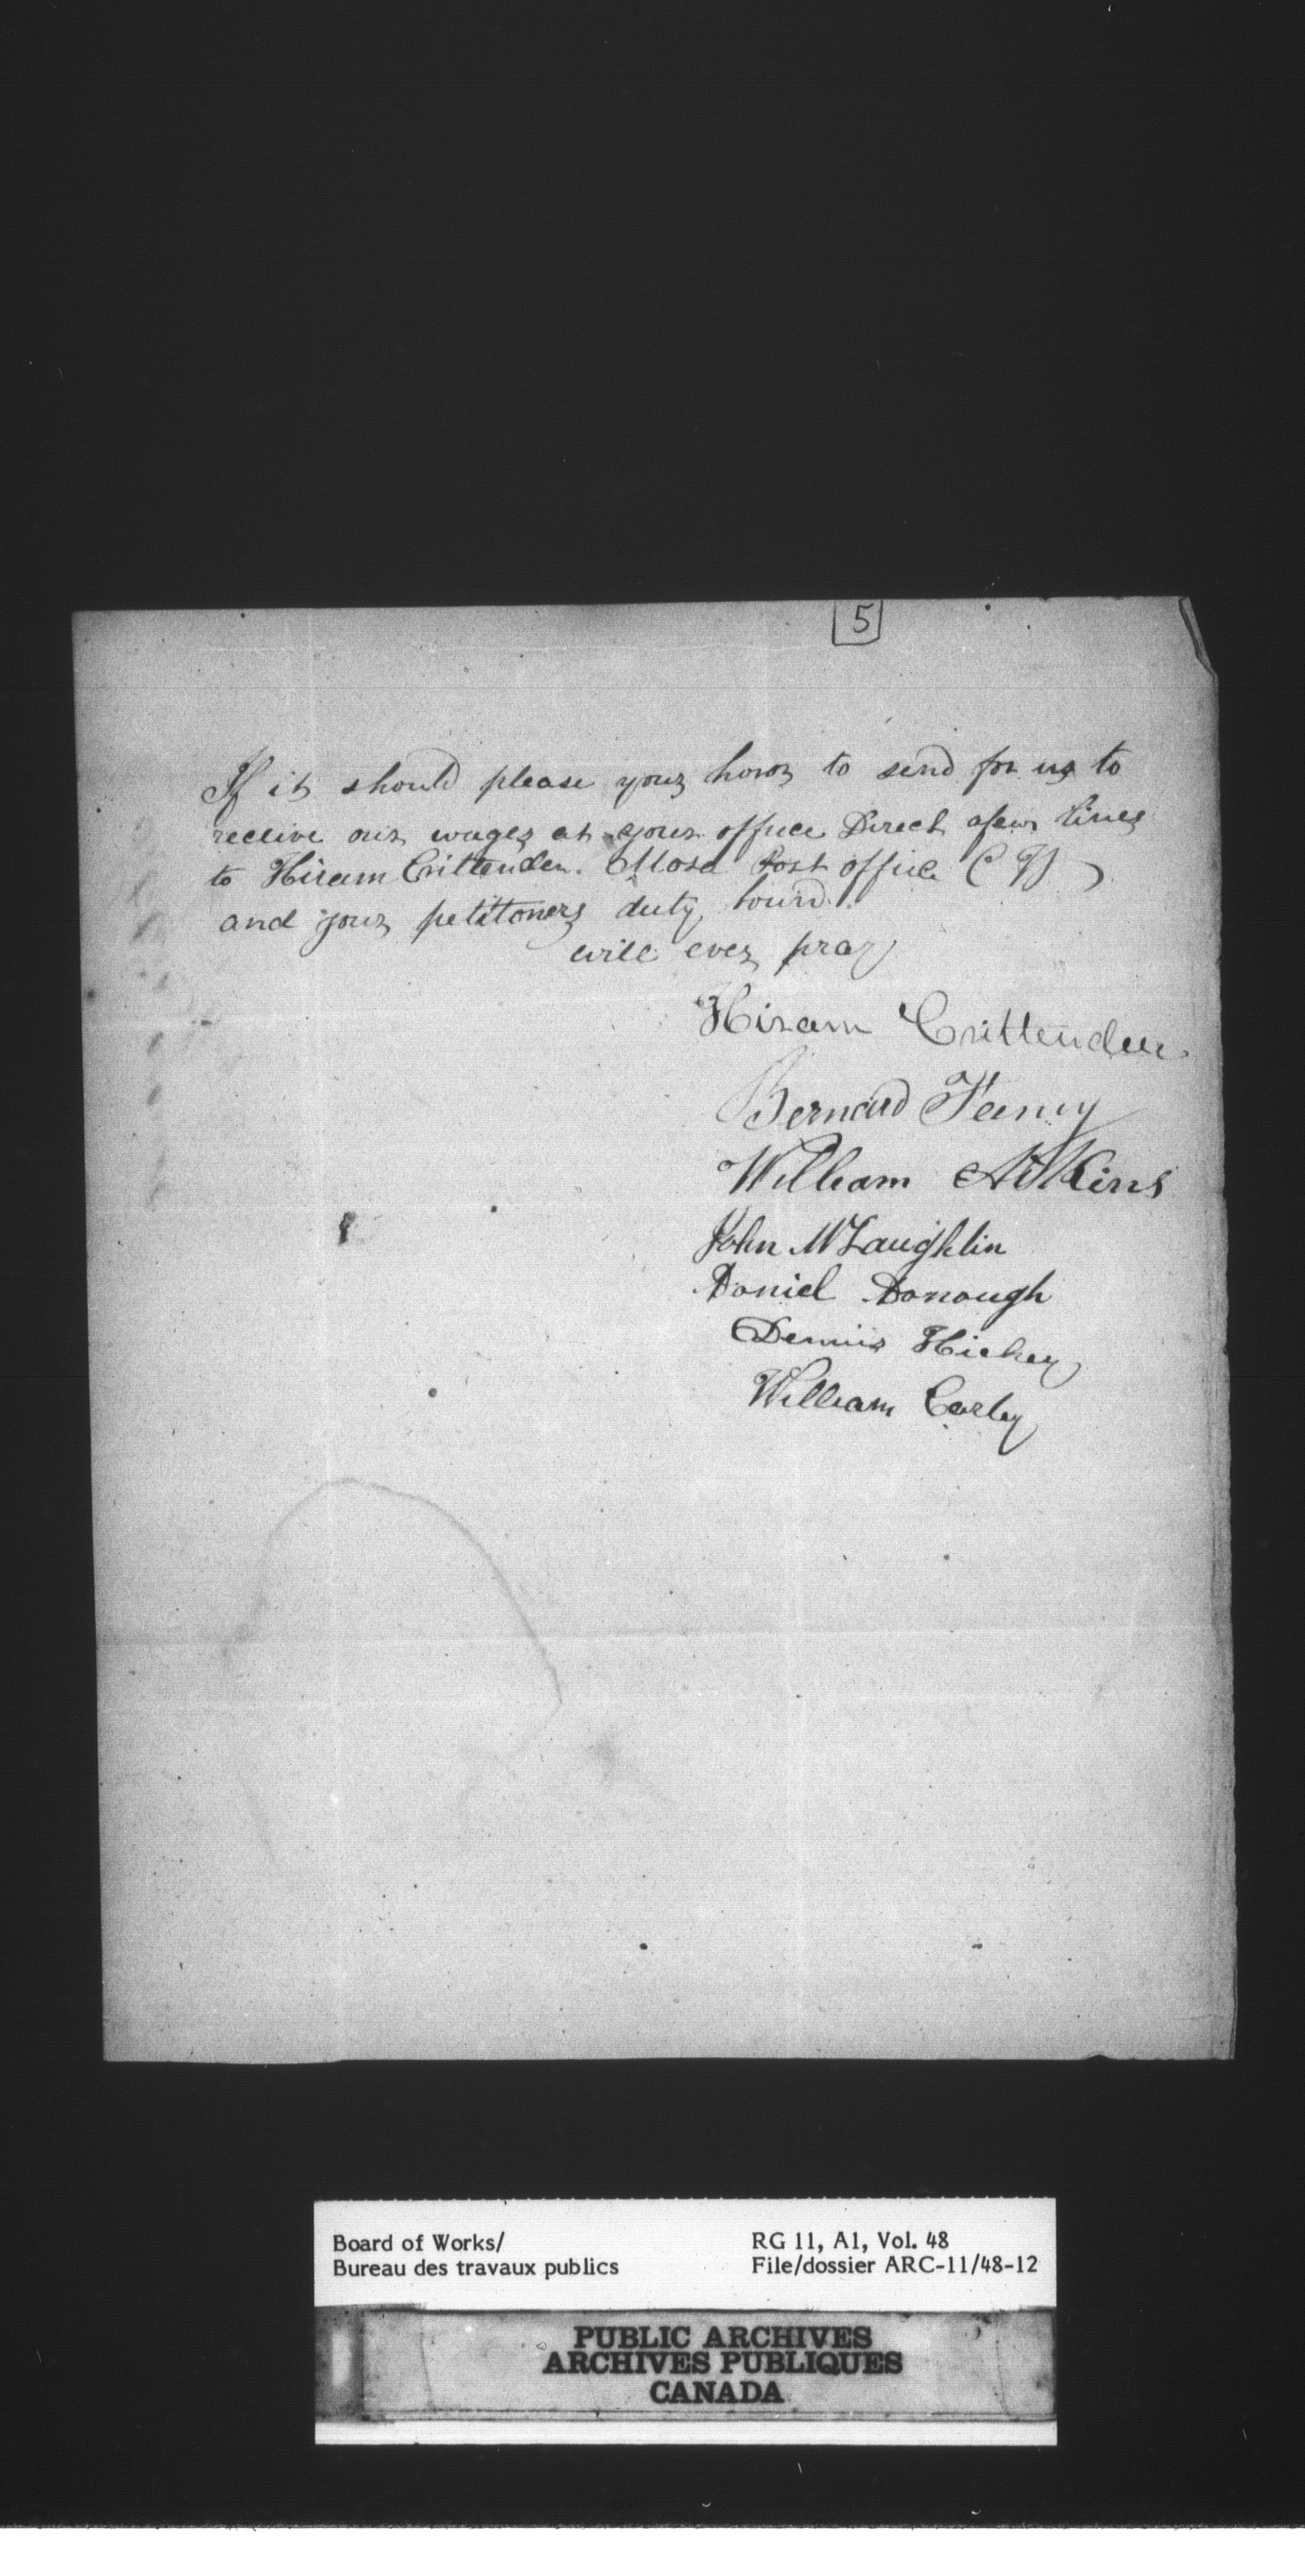 5
If it should please your honor to send for us to
receive our wages at your office Direct afew lines
to Hiram Crittenden. Mosa Post office (C W)
and your petitoners duty bound
will ever pray
Hiram Crittenden
Bernard Feeney
William Adkins
John McLaughlin
Daniel Donough
Dennis Hickey
William Corley
Board of Works/
Bureau des travaux publics
RG 11, A1, Vol. 48
File/dossier ARC-11/48-12
PUBLIC ARCHIVES
ARCHIVES PUBLIQUES
CANADA